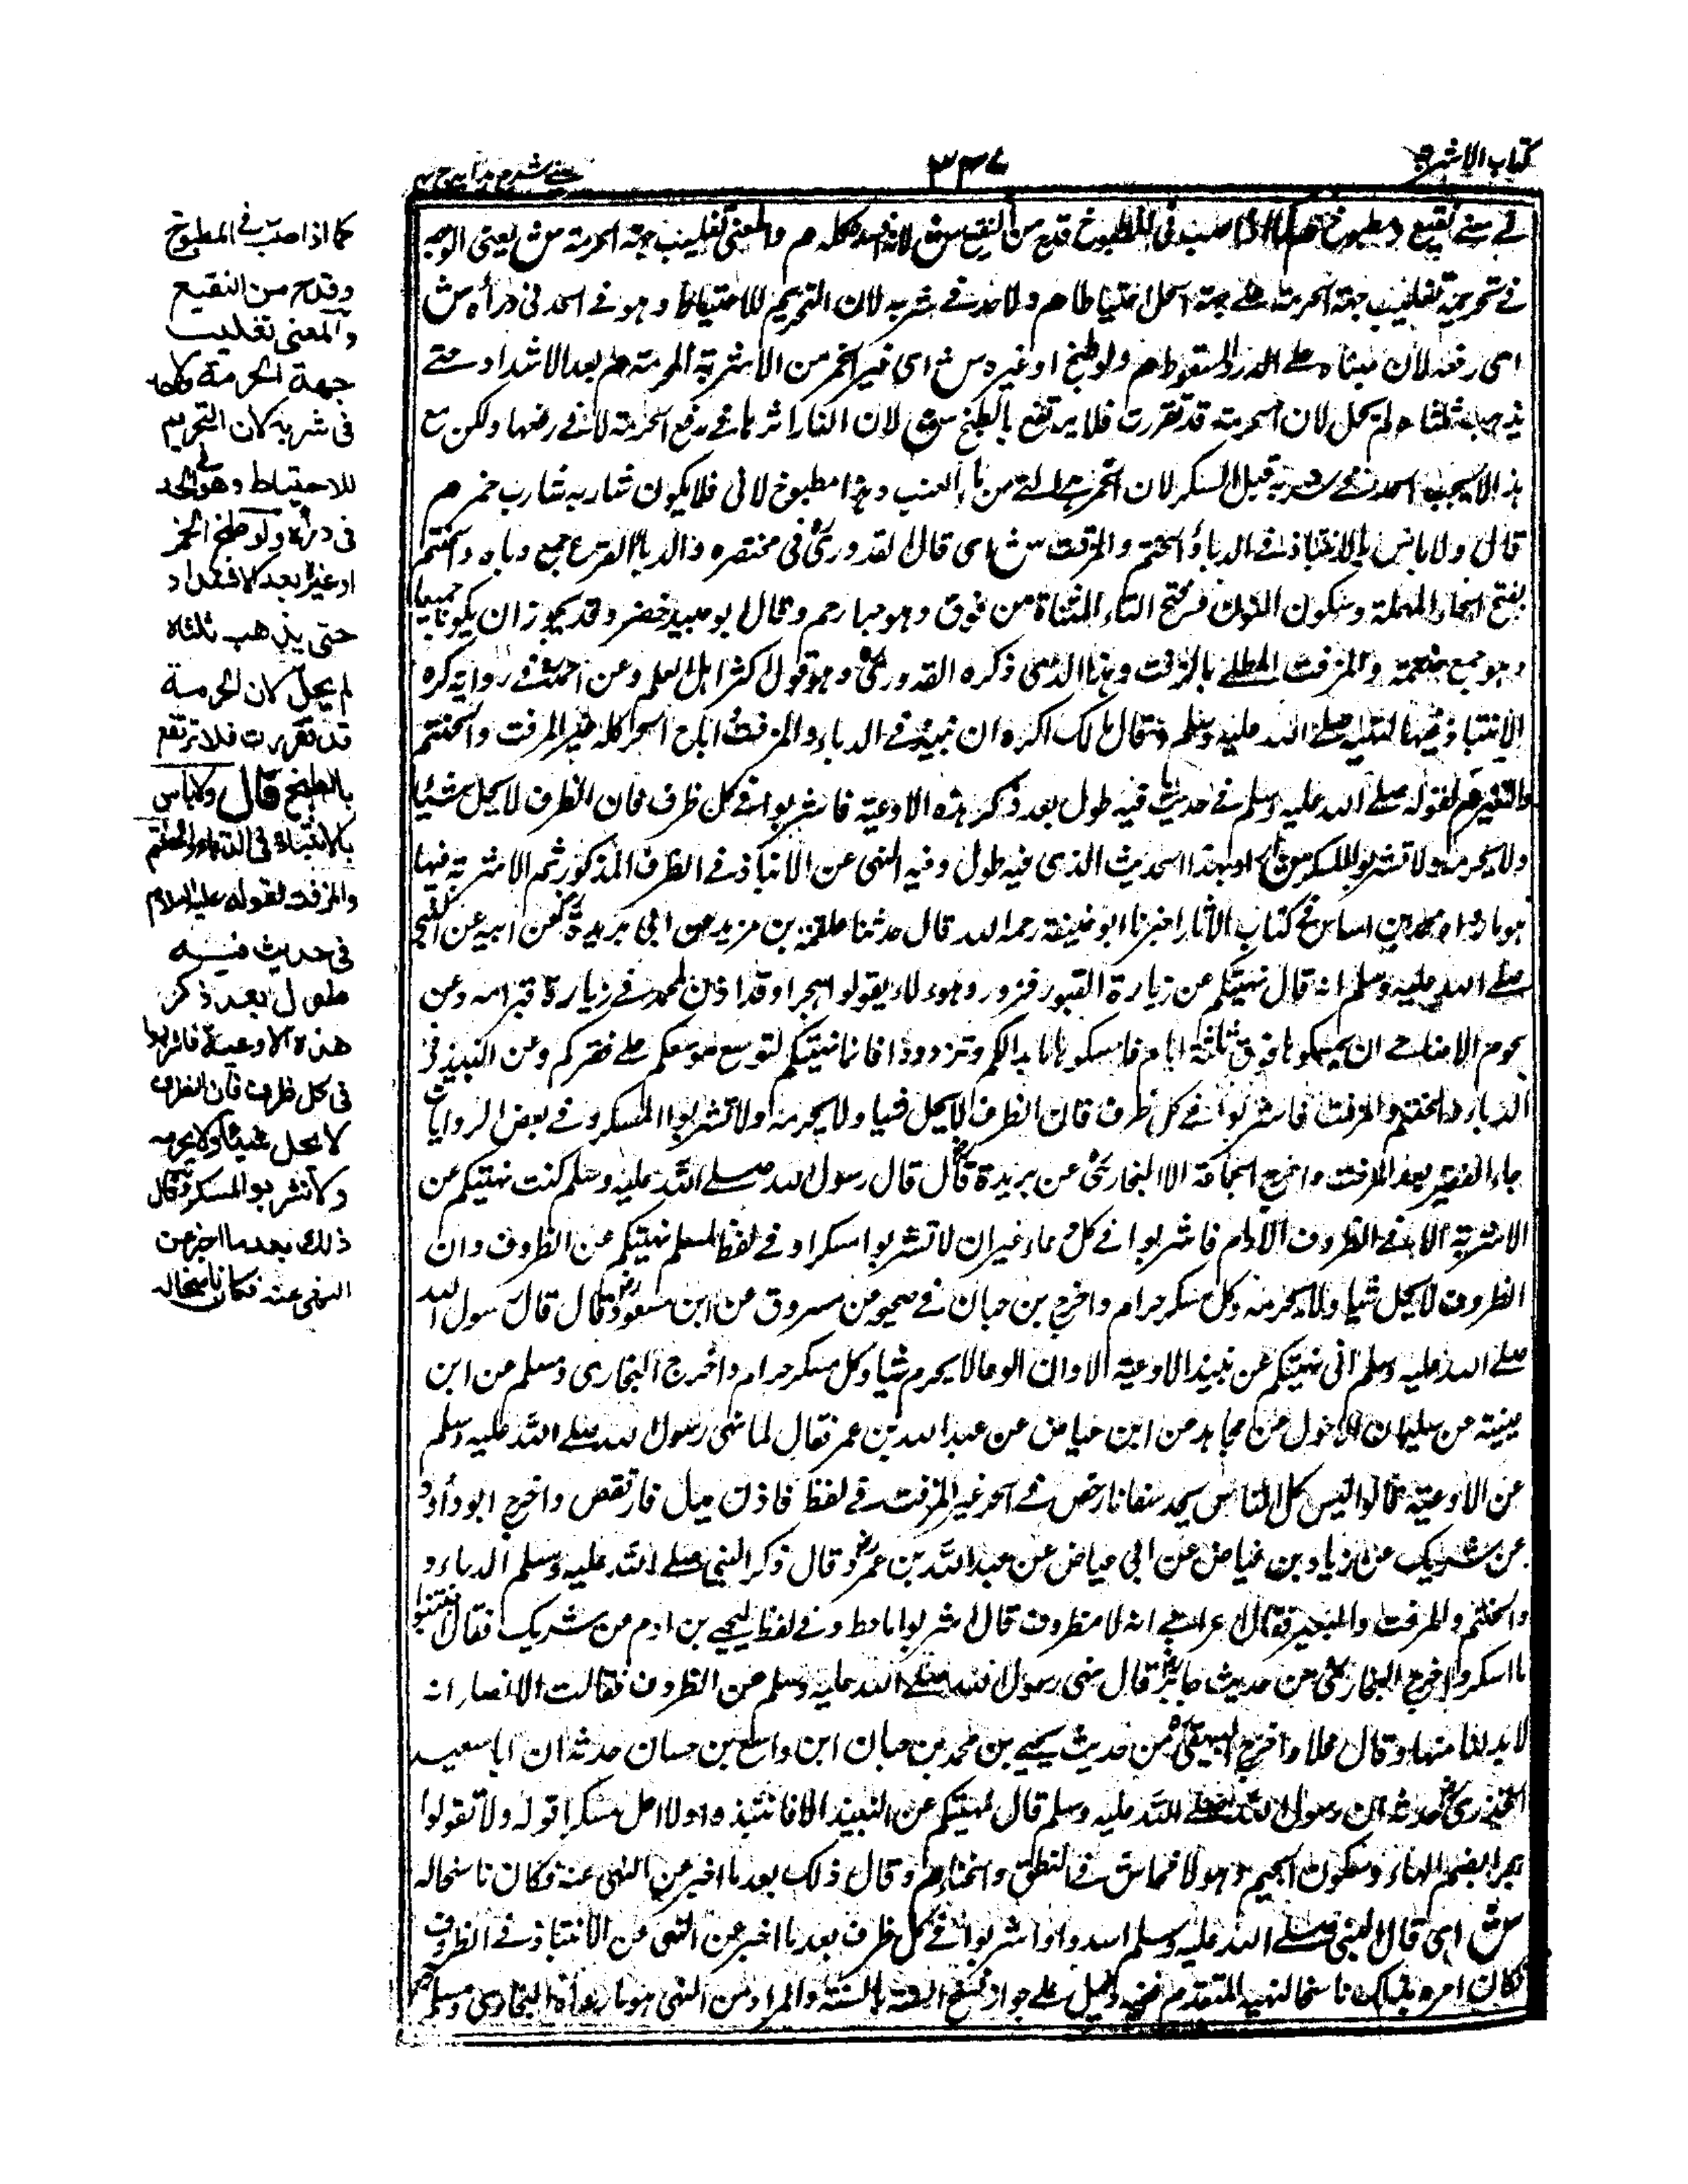 كتاب الاشربة
٣٣٤
عينى شرح هدايه ج ٤
فى معنى نقيع ومطبوخ هم كما اذا صب فى المطبوخ قدح من النقيع ش لانه يفسد كله م والمعنى تغليب جهة الحرمة ش يعنى الوجه
فى تحريمه تغليب جهة الحرمة على جهة الحل احتياطا هم ولا حد فى شربه لان التحريم للاحتياط وهو فى الحد فى درأه ش
اى رفعه لان مبناه على الدرء والسقوط هم ولو طبخ او غيره ش اى غير الخمر من الاشربة المحرمة هم بعد الاشتداد حتى
يذهب ثلثاه لم يحل لان الحرمة قد تقررت فلا يرتفع بالطبخ ش لان النار اثرها فى دفع الحرمة لا فى رفعها ولكن مع
هذا لا يجب الحد فى شربه قبل السكر لان الخمر هى التى من ماء العنب وهذا مطبوخ لا نى فلا يكون شاربه شارب خمر هم
قال ولا باس بالانتباذ فى الدباء والحنتم والمزفت ش اى قال القدورى فى مختصره والدباء القرع جمع دباه والحنتم
بفتح الحاء المهملة وسكون النون وفتح التاء المثناة من فوق وهو جرار حمر وقال ابو عبيد خضر وقد يجوز ان يكونا جميعا
وهو جمع حنتمة والمزفت المطلى بالزفت وهذا الذى ذكره القدورى وهو قول اكثر اهل العلم وعن احمد فى رواية كره
الانتباذ فيها لنهيه صلى الله عليه وسلم وقال مالك اكره ان نبيذ فى الدباء والمزفت اباح الجر كله غير المزفت والحنتم
والنقير هم لقوله صلى الله عليه وسلم فى حديث فيه طول بعد ذكر هذه الاوعية فاشربوا فى كل ظرف فان الظرف لا يحل شيئا
ولا يحرمه ولا تشربوا المسكر ش اراد بهذا الحديث الذى فيه طول وفيه النهى عن الانتباذ فى الظرف المذكور ثم الاشربة فيها
هو ما رواه محمد بن الحسن فى كتاب الآثار اخبرنا ابو حنيفة رحمه الله قال حدثنا علقمة بن مزيد عن ابى بريدة عن ابيه عن النبى
صلى الله عليه وسلم انه قال نهيتكم عن زيارة القبور فزوروها ولا يقولوا هجرا وقد اذن لمحمد فى زيارة قبر امه وعن
لحوم الاضاحى ان تمسكوها فوق ثلثة ايام فامسكوها ما بدا لكم وتزودوا فانما نهيتكم لتوسع موسعكم على فقركم وعن النبيذ فى
الدباء والحنتم والمزفت فاشربوا فى كل ظرف فان الظرف لا يحل شيا ولا يحرمه ولا تشربوا المسكر وفى بعض الروايات
جاء النقير بعد المزفت واخرج الجماعة الا البخارى عن بريدة قال قال رسول الله صلى الله عليه وسلم كنت نهيتكم عن
الاشربة الا فى الظروف الادم فاشربوا فى كل وعاء غير ان لا تشربوا مسكرا وفى لفظ لمسلم نهيتكم عن الظروف وان
الظروف لا يحل شيا ولا يحرمه وكل مسكر حرام واخرج بن حبان فى صحيحه عن مسروق عن ابن مسعود قال قال رسول الله
صلى الله عليه وسلم انى نهيتكم عن نبيذ الاوعية الا وان الوعاء لا يحرم شيا وكل مسكر حرام واخرج البخارى ومسلم عن ابن
عيينة عن سليمان الاحول عن مجاهد عن ابن عياض عن عبد الله بن عمر فقال لما نهى رسول الله صلى الله عليه وسلم
عن الاوعية قالوا ليس كل الناس يجد سقاء فارخص فى الجر غير المزفت وفى لفظ فاذن واخرج ابو داود
عن شريك عن زياد بن فياض عن ابى عياض عن عبد الله بن عمر وقال ذكر النبى صلى الله عليه وسلم الدباء و
والحنتم والمزفت والنقير فقال اعرابى انه لا ظروف قال اشربوا ما حل وفى لفظ ليحيى بن ادم عن شريك فقال اجتنبوا
ما اسكر واخرج البخارى عن حديث جابر قال نهى رسول الله صلى الله عليه وسلم عن الظروف فقالت الانصار انه
لا بد لنا منها وقال فلا واخرج البيهقى من حديث يحيى بن محمد بن حبان ابن واسع بن حسان حدثه ان ابا سعيد
الخدرى حدثه ان رسول الله صلى الله عليه وسلم قال نهيتكم عن النبيذ الا فانتبذوا ولا احل مسكرا قوله ولا تقولوا
هجرا بضم الهاء وسكون الجيم وهو الافحاش فى النطق والخنا هم وقال ذلك بعد ما اخبر عن النهى عنه فكان ناسخا له
ش اى قال النبى صلى الله عليه وسلم اشربوا فى كل ظرف بعد ما اخبر عن النهى عن الانتباذ فى الظروف
فكان امره بذلك ناسخا لنهيه المتقدم فيه دليل على جواز نسخ السنة بالسنة والمراد من النهى هو ما رواه البخارى ومسلم
كما اذا صب فى المطبوخ
وقدح من النقيع
والمعنى تغليب
جهة الحرمة ولا حد
فى شربه لان التحريم
للاحتياط وهو فى الحد
فى درأه ولو طبخ الخمر
او غيره بعد الاشتداد
حتى يذهب ثلثاه
لم يحل لان الحرمة
قد تقررت فلا ترتفع
بالطبخ قال ولا باس
بالانتباذ فى الدباء والحنتم
والمزفت لقوله عليه السلام
فى حديث فيه
طول بعد ذكر
هذه الاوعية فاشربوا
فى كل ظرف فان الظرف
لا يحل شيئا ولا يحرمه
ولا تشربوا المسكر وقال
ذلك بعد ما اخبر عن
النهى عنه فكان ناسخا له